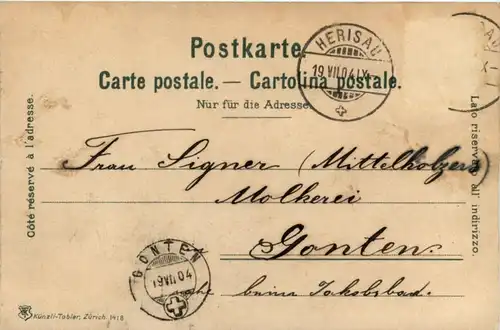 Postkarte.
Carte postale. — Cartolina postale.
Nur für die Adresse
HERISAU
19.VII.04.IX
Côté réservé à l'adresse.
Lato riservato all' indirizzo.
Frau Signer (Mittelholzers)
Molkerei
Gonten.
beim Jakobsbad.
GONTEN
19.VII.04
Künzli-Tobler, Zürich. 1418